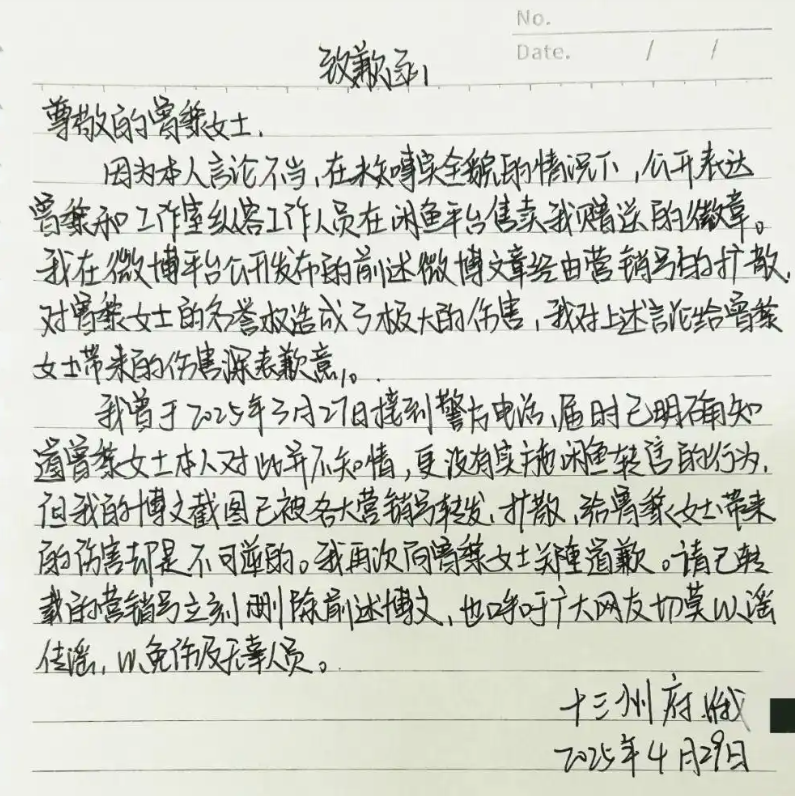 No.
Date. / /
致歉函
尊敬的曾黎女士,
因为本人言论不当,在未知晓事实全貌的情况下,公开表达
曾黎和工作室纵容工作人员在闲鱼平台售卖我赠送的徽章。
我在微博平台公开发布的前述微博文章经由营销号的扩散,
对曾黎女士的名誉权造成了极大的伤害,我对上述言论给曾黎
女士带来的伤害深表歉意。
我曾于2025年3月27日接到警方电话,届时已明确知
道曾黎女士本人对此并不知情,更没有实施闲鱼转售的行为,
但我的博文截图已被各大营销号转发、扩散,给曾黎女士带来
的伤害却是不可逆的。我再次向曾黎女士郑重道歉。请已转
载的营销号立刻删除前述博文,也呼吁广大网友切莫以谣
传谣,以免伤及无辜人员。
十三州府
2025年4月29日